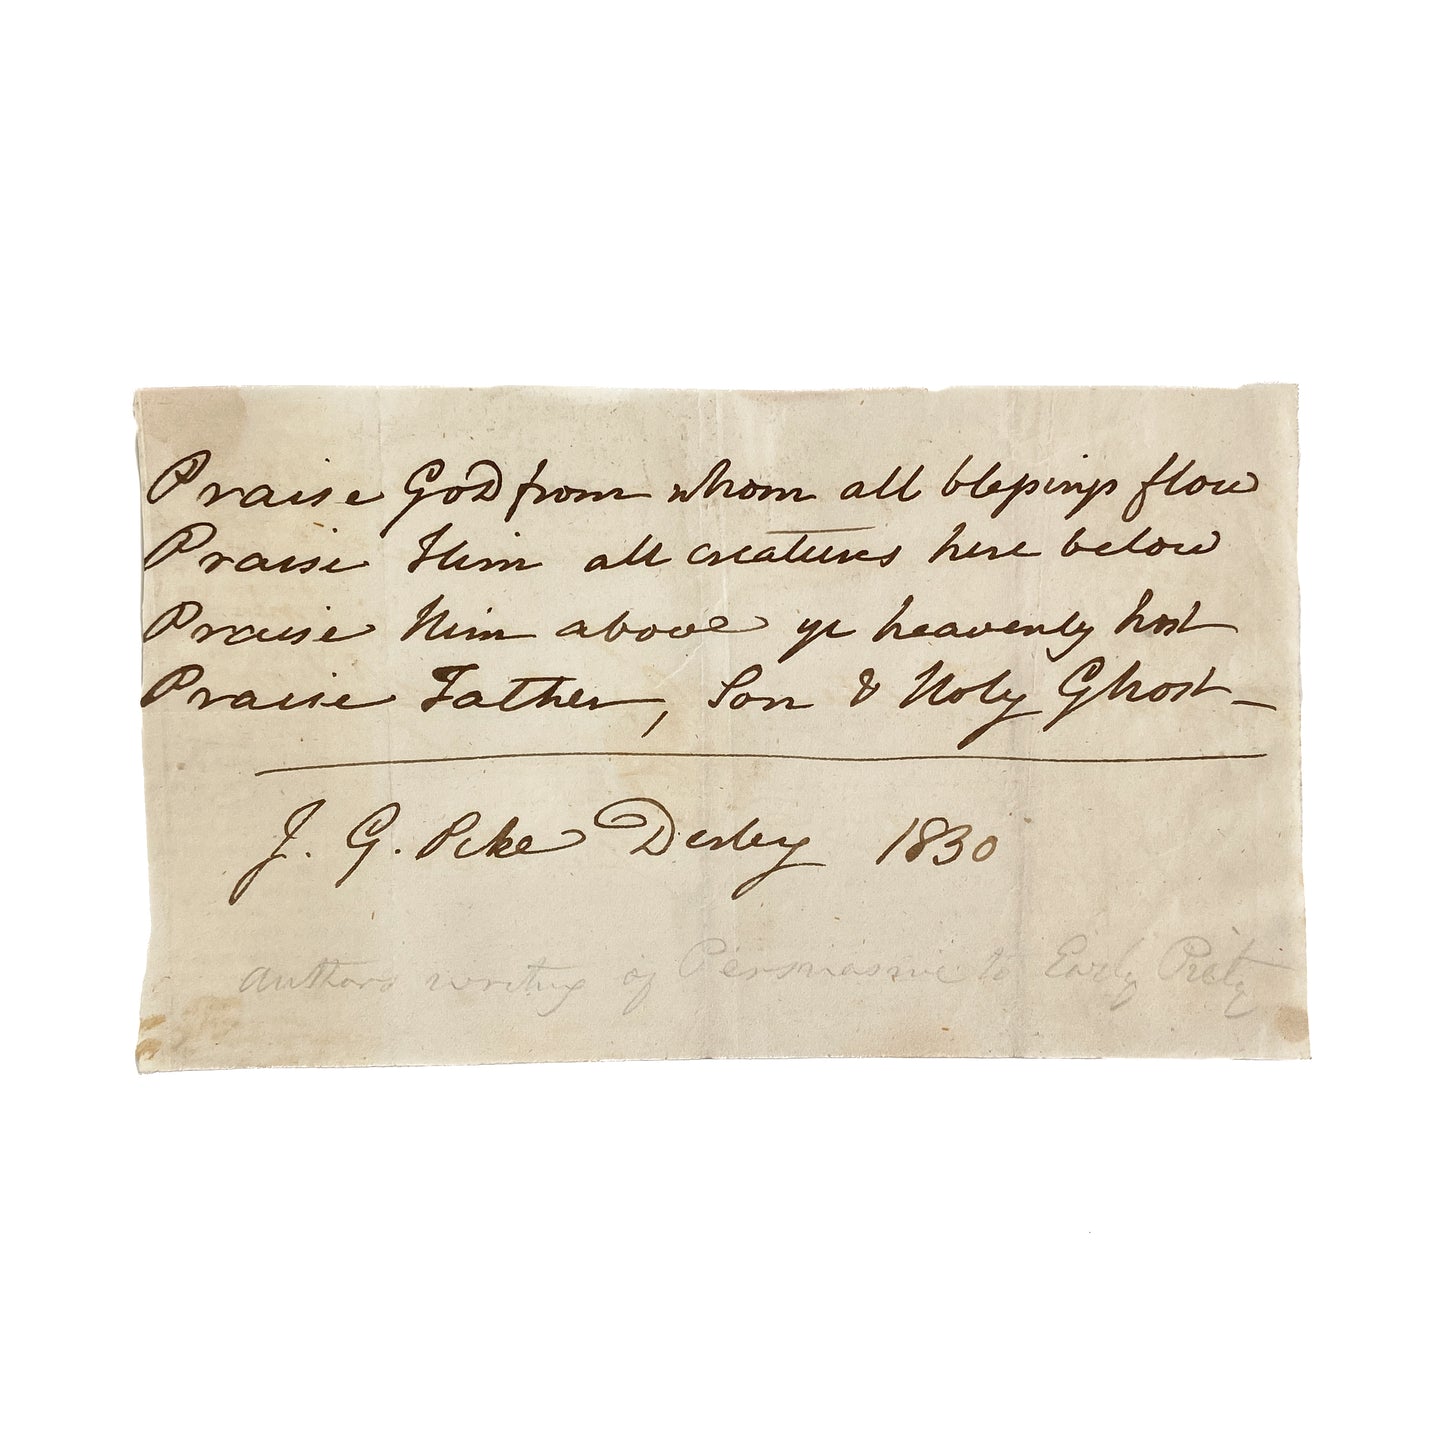 Praise God from whom all blessings flow
Praise Him all creatures here below
Praise Him above ye heavenly host
Praise Father, Son & Holy Ghost —
J. G. Pike Derby 1830
Authors writing of Persuasive to Early Piety